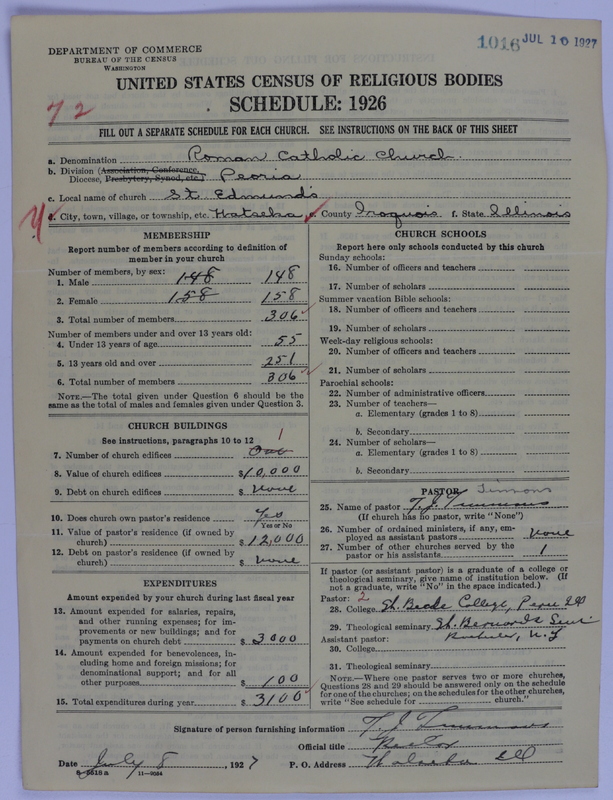 DEPARTMENT OF COMMERCE
BUREAU OF THE CENSUS
WASHINGTON
1016 JUL 10 1927
UNITED STATES CENSUS OF RELIGIOUS BODIES
SCHEDULE: 1926
72
FILL OUT A SEPARATE SCHEDULE FOR EACH CHURCH. SEE INSTRUCTIONS ON THE BACK OF THIS SHEET
a. Denomination Roman Catholic Church
b. Division (Association, Conference, Diocese, Presbytery, Synod, etc.) Peoria
c. Local name of church St Edmund's
d. City, town, village, or township, etc. Watseka e. County Iroquois f. State Illinois
MEMBERSHIP
Report number of members according to definition of member in your church
Number of members, by sex:
1. Male 148 148
2. Female 158 158
3. Total number of members 306
Number of members under and over 13 years old:
4. Under 13 years of age 55
5. 13 years old and over 251
6. Total number of members 306
NOTE.—The total given under Question 6 should be the same as the total of males and females given under Question 3.
CHURCH BUILDINGS
See instructions, paragraphs 10 to 12
7. Number of church edifices One 1
8. Value of church edifices $10,000
9. Debt on church edifices $ None
10. Does church own pastor's residence Yes
Yes or No
11. Value of pastor's residence (if owned by church) $12,000
12. Debt on pastor's residence (if owned by church) $ None
EXPENDITURES
Amount expended by your church during last fiscal year
13. Amount expended for salaries, repairs, and other running expenses; for improvements or new buildings; and for payments on church debt $3000
14. Amount expended for benevolences, including home and foreign missions; for denominational support; and for all other purposes $100
15. Total expenditures during year $3100
CHURCH SCHOOLS
Report here only schools conducted by this church
Sunday schools:
16. Number of officers and teachers
17. Number of scholars
Summer vacation Bible schools:
18. Number of officers and teachers
19. Number of scholars
Week-day religious schools:
20. Number of officers and teachers
21. Number of scholars
Parochial schools:
22. Number of administrative officers
23. Number of teachers—
a. Elementary (grades 1 to 8)
b. Secondary
24. Number of scholars—
a. Elementary (grades 1 to 8)
b. Secondary
PASTOR Timmons
25. Name of pastor T. J. Timmons
(If church has no pastor, write "None")
26. Number of ordained ministers, if any, employed as assistant pastors None
27. Number of other churches served by the pastor or his assistants 1
If pastor (or assistant pastor) is a graduate of a college or theological seminary, give name of institution below. (If not a graduate, write "No" in the space indicated.)
Pastor: 2
28. College St. Bede College, Peru Ill
29. Theological seminary St. Bernards Sem
Assistant pastor: Rochester, N.Y
30. College
31. Theological seminary
NOTE.—Where one pastor serves two or more churches, Questions 28 and 29 should be answered only on the schedule for one of the churches; on the schedules for the other churches, write "See schedule for ________ church."
Signature of person furnishing information T J Timmons
Official title Rector
Date July 8, 1927 P. O. Address Watseka Ill
8-5518a 11-9084